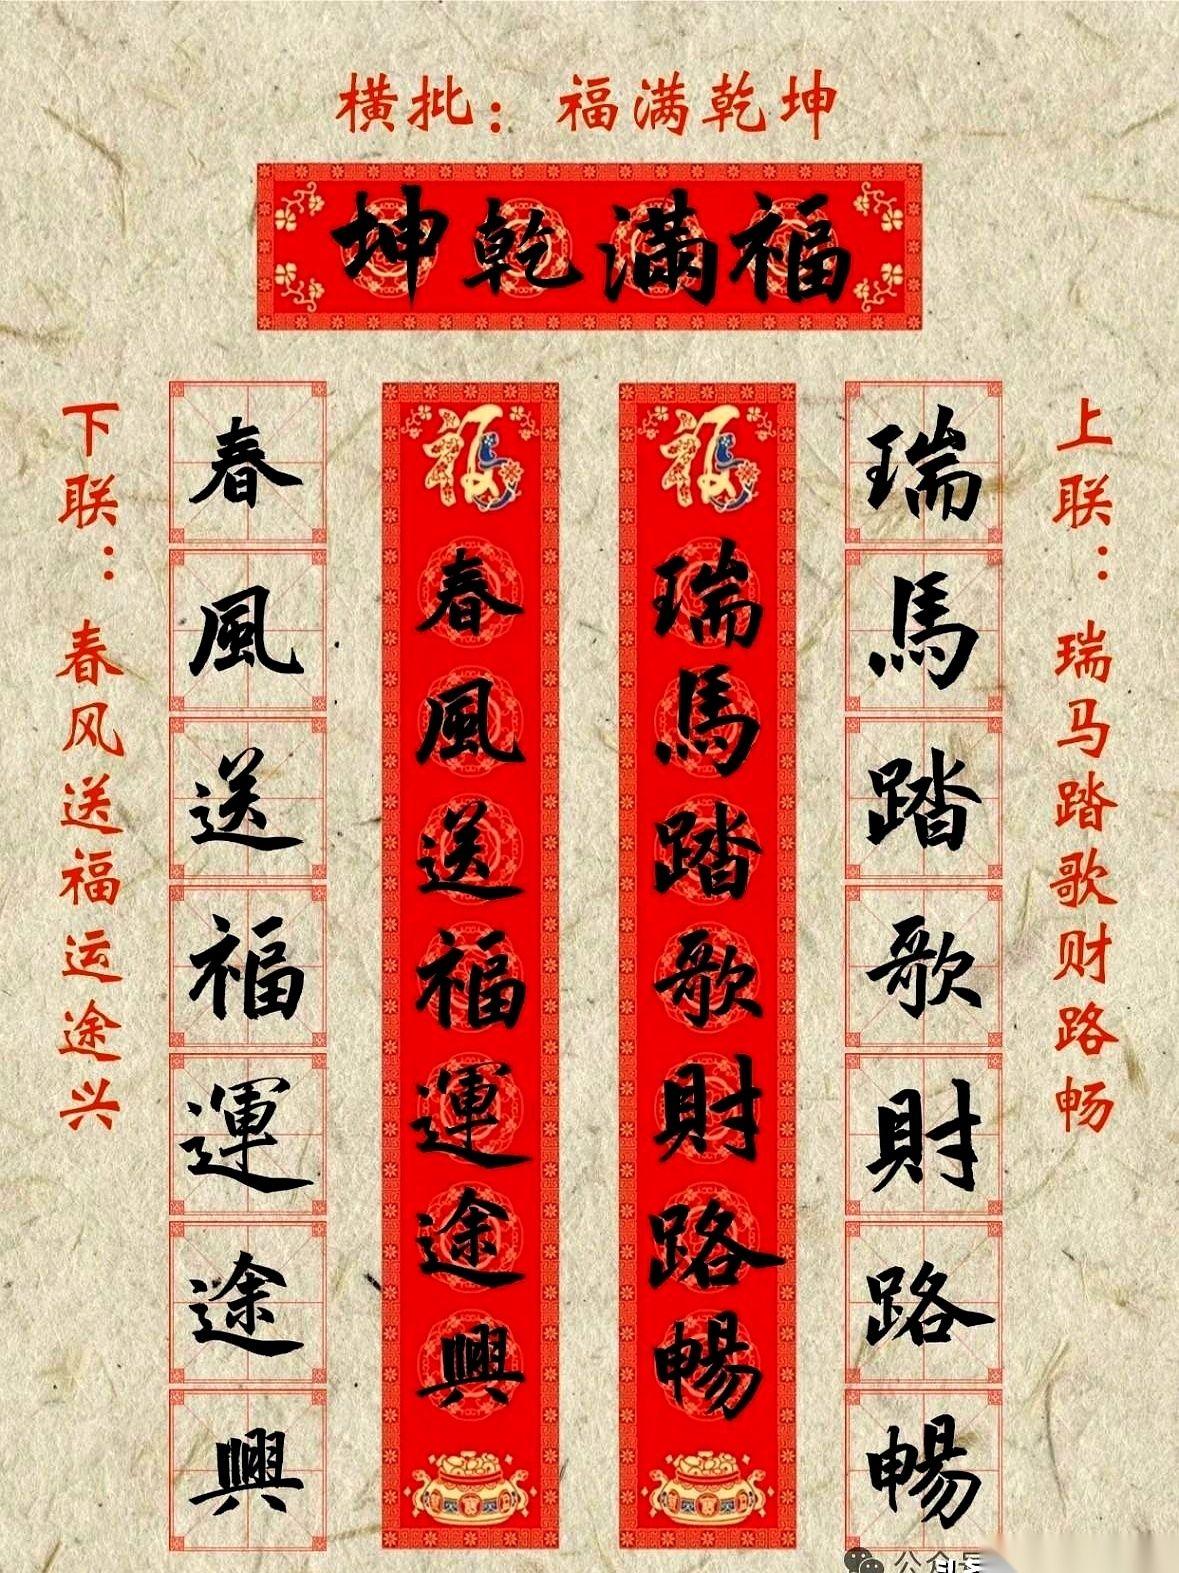 横批：福满乾坤
福滿乾坤
上联：瑞马踏歌财路畅
瑞馬踏歌財路暢
福瑞馬踏歌財路暢
福春風送福運途興
春風送福運途興
下联：春风送福运途兴
公众号